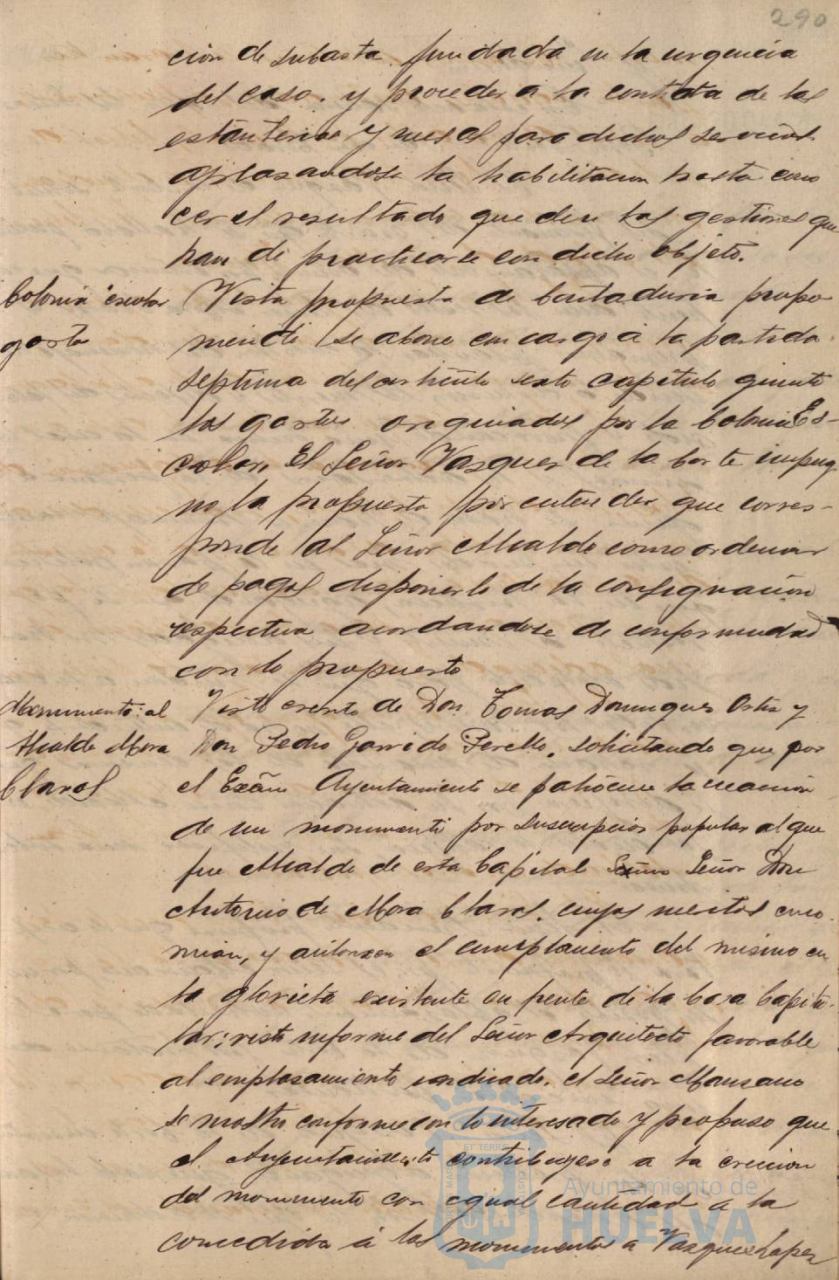 290
cion de subasta fundada en la urgencia
del caso. y proceder a la contrata de las
estanterias y mesas para dichos servicios
aplasandose la habilitacion hasta cono
cer el resultado que den las gestiones que
han de practicarse con dicho objeto.
Colonia escolar
gastos
Vista propuesta de Contaduria propo
niendo se abone con cargo á la partida
septima del articulo sexto capitulo quinto
los gastos originados por la Colonia Es-
colar. El Señor Vazquez de la Corte impug
nó la propuesta por entender que corres-
ponde al Señor Alcalde como ordenador
de pagos disponerlo de la consignación
respectiva acordandose de conformidad
con lo propuesto
Monumento al
Alcalde Mora
Claros
Visto escrito de Don Tomas Dominguez Ortiz y
Don Pedro Garrido Perello, solicitando que por
el Excmo Ayuntamiento se patrocine la creación
de un monumento por suscripcion popular al que
fue Alcalde de esta Capital Señor Don
Antonio de Mora Claros. cuyos meritos enco
mian, y autorizen el emplazamiento del mismo en
la glorieta existente en frente de la Casa Capitu-
lar; visto informe del Señor Arquitecto favorable
al emplasamiento indicado. el Señor Manzano
se mostro conforme con lo interesado y propuso que
el Ayuntamiento contribuyese a la creacion
del monumento con igual cantidad a la
concedida á los monumentos a Vazquez Lopez
Ayuntamiento de
HUELVA